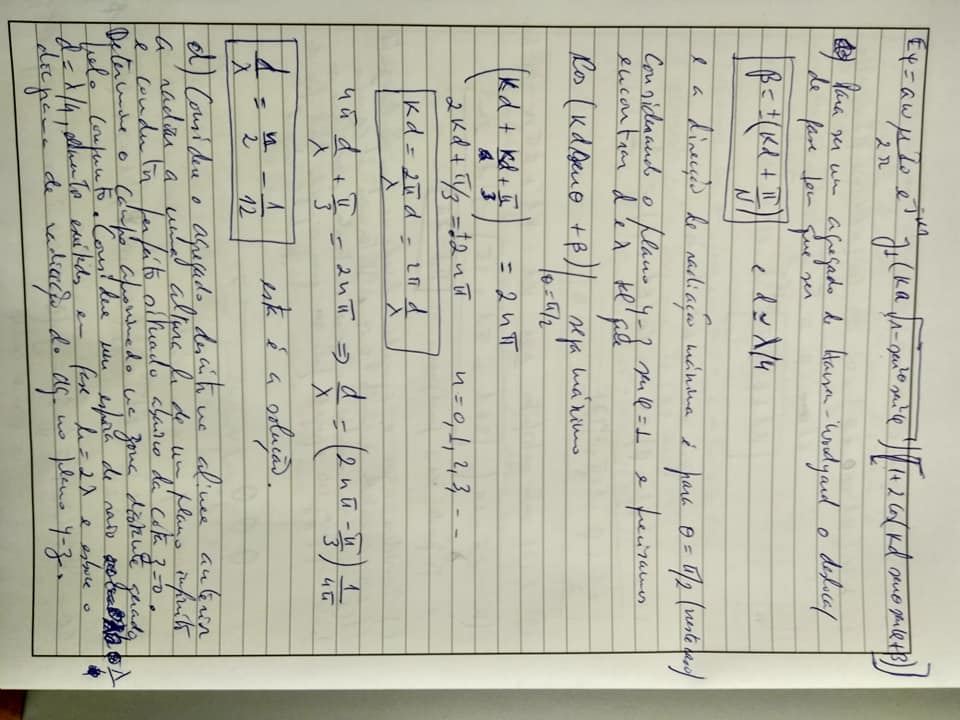 Eφ = aω μ I0 e^-jkr / 2r J1(ka √1-sen²θ sen²φ) [1+2cos(kd senθ senφ+β)]
c) Para ser um agregado de Hansen-Woodyard o desfoc/
de fase tem que ser
β = ±(kd + π/N) e d ≃ λ/4
e a direcção de radiação máxima é para θ = π/2 (neste caso)
Considerando o plano y-z senφ=1 e precisamos
encontrar d e λ tal que
cos (kd senθ + β)|θ=π/2 seja máximo
(kd + kd + π/3) = 2nπ
2kd + π/3 = ±2nπ n = 0, 1, 2, 3, - -
kd = 2π/λ d = 2π d/λ
4π d/λ + π/3 = 2nπ ⇒ d/λ = (2nπ - π/3) 1/4π
d/λ = n/2 - 1/12 esta é a solução.
d) Considere o agregado descrito na alinea anterior
a radiar a uma altura h de um plano infinito
e condutor perfeito situado abaixo da cota z=0.
Determine o campo aproximado na zona distante gerado
pelo conjunto. Considere um espira de raio = λ/
d = λ/4, elementos exitados em fase h = 2λ e esboce o
diagrama de radiação do ag. no plano y-z.